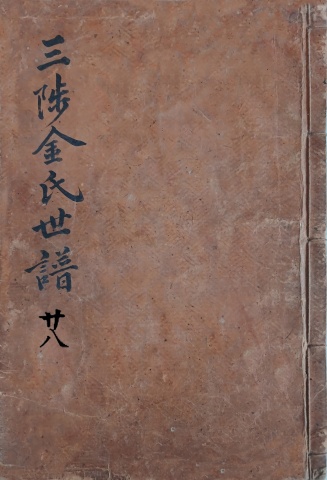 三陟金氏世譜
廿八